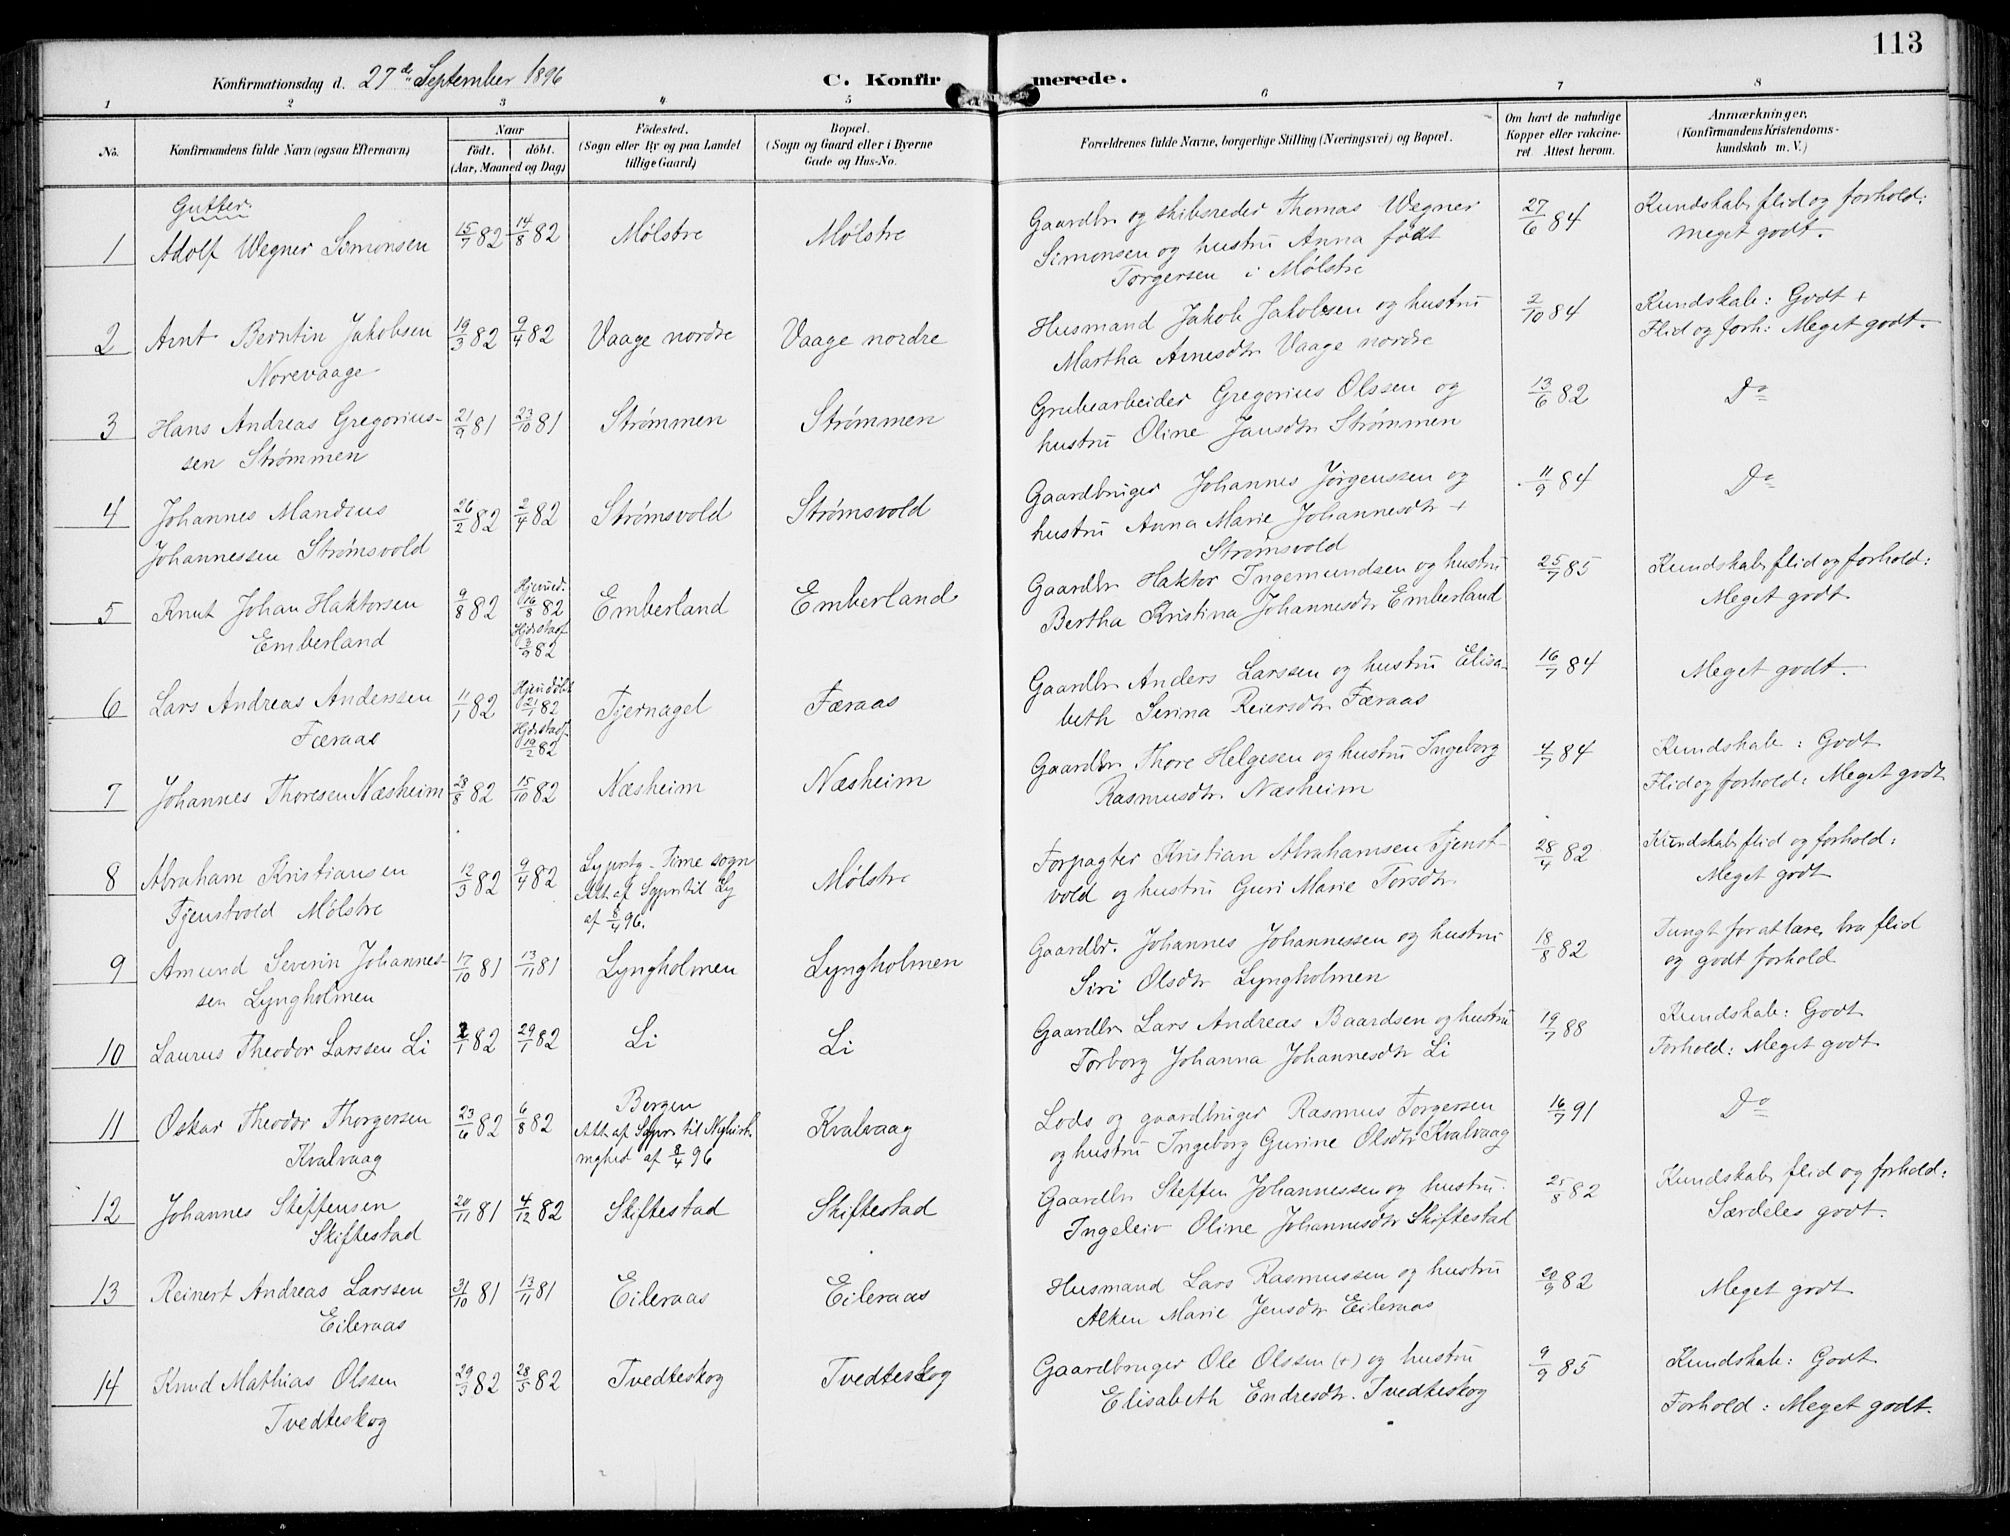 113
Konfirmationsdag d. 27de September 1896
C. Konfirmerede.
1 2 3 4 5 6 7 8
No.
Konfirmandens fulde Navn (ogsaa Efternavn)
Naar
Födt. döbt.
(Aar, Maaned og Dag)
Födested.
(Sogn eller By og paa Landet
tillige Gaard)
Bopæl.
(Sogn og Gaard eller i Byerne
Gade og Hus-No.
Forældrenes fulde Navne, borgerlige Stilling (Næringsvei) og Bopæl.
Om havt de naturlige
Kopper eller vakcine-
ret Attest herom.
Anmærkninger,
(Konfirmandens Kristendoms-
kundskab m. V.)
Gutter.
1 Adolf Wegner Simonsen 15/7 82 14/8 82 Mølstre Mølstre
Gaardbr og skibsreder Thomas Wegner
Simonsen og hustru Anna født
Torgersen i Mølstre
27/6 84
Kundskab, flid og forhold:
meget godt.
2 Arnt Berntin Jakobsen
Norevaage
19/3 82 9/4 82 Vaage nordre Vaage nordre
Husmand Jakob Jakobsen og hustru
Martha Arnesdtr Vaage nordre
2/10 84
Kundskab: Godt +
Flid og forh: Meget godt.
3 Hans Andreas Gregorius-
sen Strømmen
21/9 81 23/10 81 Strømmen Strømmen
Grubearbeider Gregorius Olssen og
hustru Oline Jansdtr Strømmen
13/6 82
Do
4 Johannes Mandius
Johannessen Strømsvold
26/2 82 2/4 82 Strømsvold Strømsvold
Gaardbruger Johannes Jørgenssen og
hustru Anna Marie Johannesdtr +
Strømsvold
11/9 84
Do
5 Knut Johan Haktorsen
Emberland
9/8 82 Hjemmed.
16/8 82
Hjdsstadf
3/9 82
Emberland Emberland
Gaardbr Haktor Ingemundsen og hustru
Bertha Kristina Johannesdtr Emberland
25/7 85
Kundskab, flid og forhold:
Meget godt
6 Lars Andreas Anderssen
Færaas
11/1 82 Hjemdøbt
21/1 82
Hjdsstadf.
19/2 82
Tjernagel Færaas
Gaardbr Anders Larssen og hustru Elisa-
beth Serina Reiersdtr Færaas
16/7 84
Meget godt.
7 Johannes Thoresen Næsheim 28/8 82 15/10 82 Næsheim Næsheim
Gaardbr Thore Helgesen og hustru Ingeborg
Rasmusdtr. Næsheim
4/7 84
Kundskab: Godt
Flid og forhold: Meget godt
8 Abraham Kristiansen
Tjenstvold Mølstre
12/3 82 9/4 82
Lyprstg - Time sogn
Att. af Sgprs til Ly
af 8/4 96.
Mølstre
Forpagter Kristian Abrahamsen Tjenst-
vold og hustru Guri Marie Torsdtr
28/4 82
Kundskab, flid og forhold:
Meget godt
9 Amund Severin Johannes-
sen Lyngholmen
17/10 81 13/11 81 Lyngholmen Lyngholmen
Gaardbr. Johannes Johannessen og hustru
Siri Olsdtr Lyngholmen
18/8 82
Tungt for at lære, bra flid
og godt forhold
10 Laurus Theodor Larssen Li 2/1 82 29/1 82 Li Li
Gaardbr Lars Andreas Baardsen og hustru
Torborg Johanna Johannesdtr Li
19/7 88
Kundskab: Godt
Forhold: Meget godt
11 Oskar Theodor Thorgersen
Kvalvaag
23/6 82 6/8 82
Bergen
Att. af Sgprs til Nykirk.
mghed af 8/4 96
Kvalvaag
Lods og gaardbruger Rasmus Torgersen
og hustru Ingeborg Gurine Olsdtr Kvalvaag
16/7 91
Do
12 Johannes Steffensen
Skiftestad
20/11 81 4/12 82 Skiftestad Skiftestad
Gaardbr Steffen Johannessen og hustru
Ingeleiv Oline Johannesdtr Skiftestad
25/8 82
Kundskab, flid og forhold:
Særdeles godt.
13 Reinert Andreas Larssen
Eileraas
31/10 81 13/11 81 Eileraas Eileraas
Husmand Lars Rasmussen og hustru
Alken Marie Jensdtr Eileraas
20/9 82
Meget godt
14 Knud Mathias Olssen
Tvedteskog
29/3 82 28/5 82 Tvedteskog Tvedteskog
Gaardbruger Ole Olssen (+) og hustru
Elisabeth Endresdtr. Tvedteskog
9/9 85
Kundskab: Godt
Forhold: Meget godt.